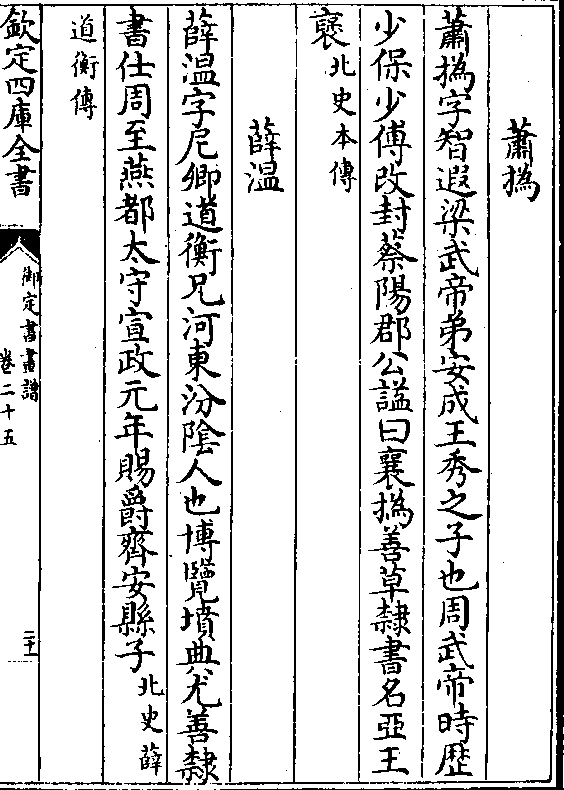 蕭撝
蕭撝字智遐梁武帝弟安成王秀之子也周武帝時歴
少保少傅改封蔡陽郡公謚曰襄撝善草隸書名亞王
襃北史本傳
薛温
薛温字尼卿道衡兄河東汾陰人也博覽墳典尤善隸
書仕周至燕郡太守宣政元年賜爵齊安縣子北史薛
道衡傳
欽定四庫全書
御定書畫譜
卷二十五
二十一